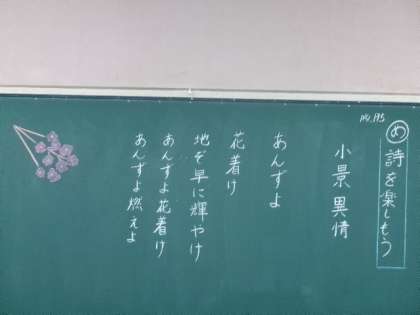 め 詩を楽しもう
小景異情
あんずよ
花着け
地ぞ早に輝やけ
あんずよ花着け
あんずよ燃えよ